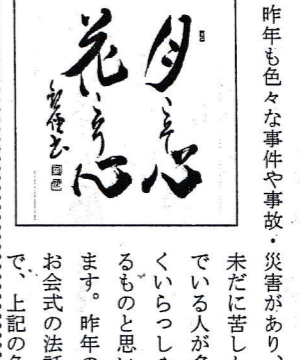 昨年も色々な事件や事故・災害があり、
未だに苦し
でいる人が
くいらっし
るものと思い
ます。昨年の
お会式の法話
で、上記の
月 心
花 心